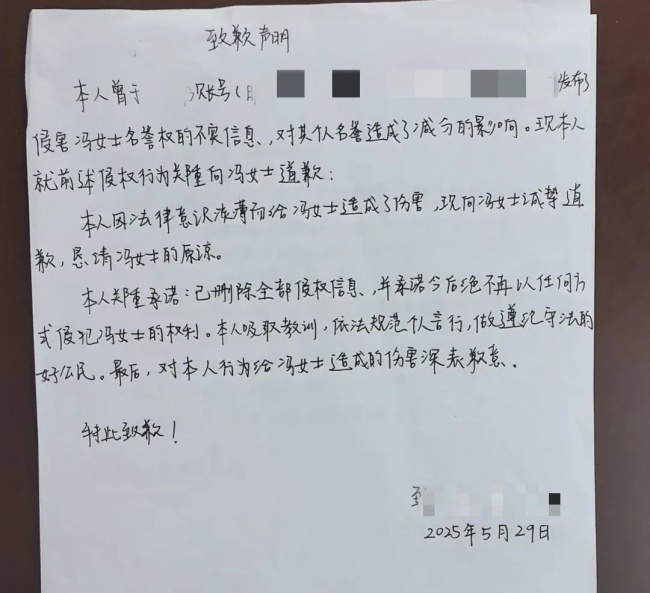 致歉声明
本人曾于 账号( 发布了
侵害冯女士名誉权的不实信息、对其个人名誉造成了减分的影响。现本人
就前述侵权行为郑重向冯女士道歉:
本人因法律意识淡薄而给冯女士造成了伤害,现向冯女士诚挚道
歉,恳请冯女士的原谅。
本人郑重承诺:已删除全部侵权信息、并承诺今后绝不再以任何方
式侵犯冯女士的权利。本人吸取教训,依法规范个人言行,做遵纪守法的
好公民。最后,对本人行为给冯女士造成的伤害深表歉意。
特此致歉!
2025年5月29日